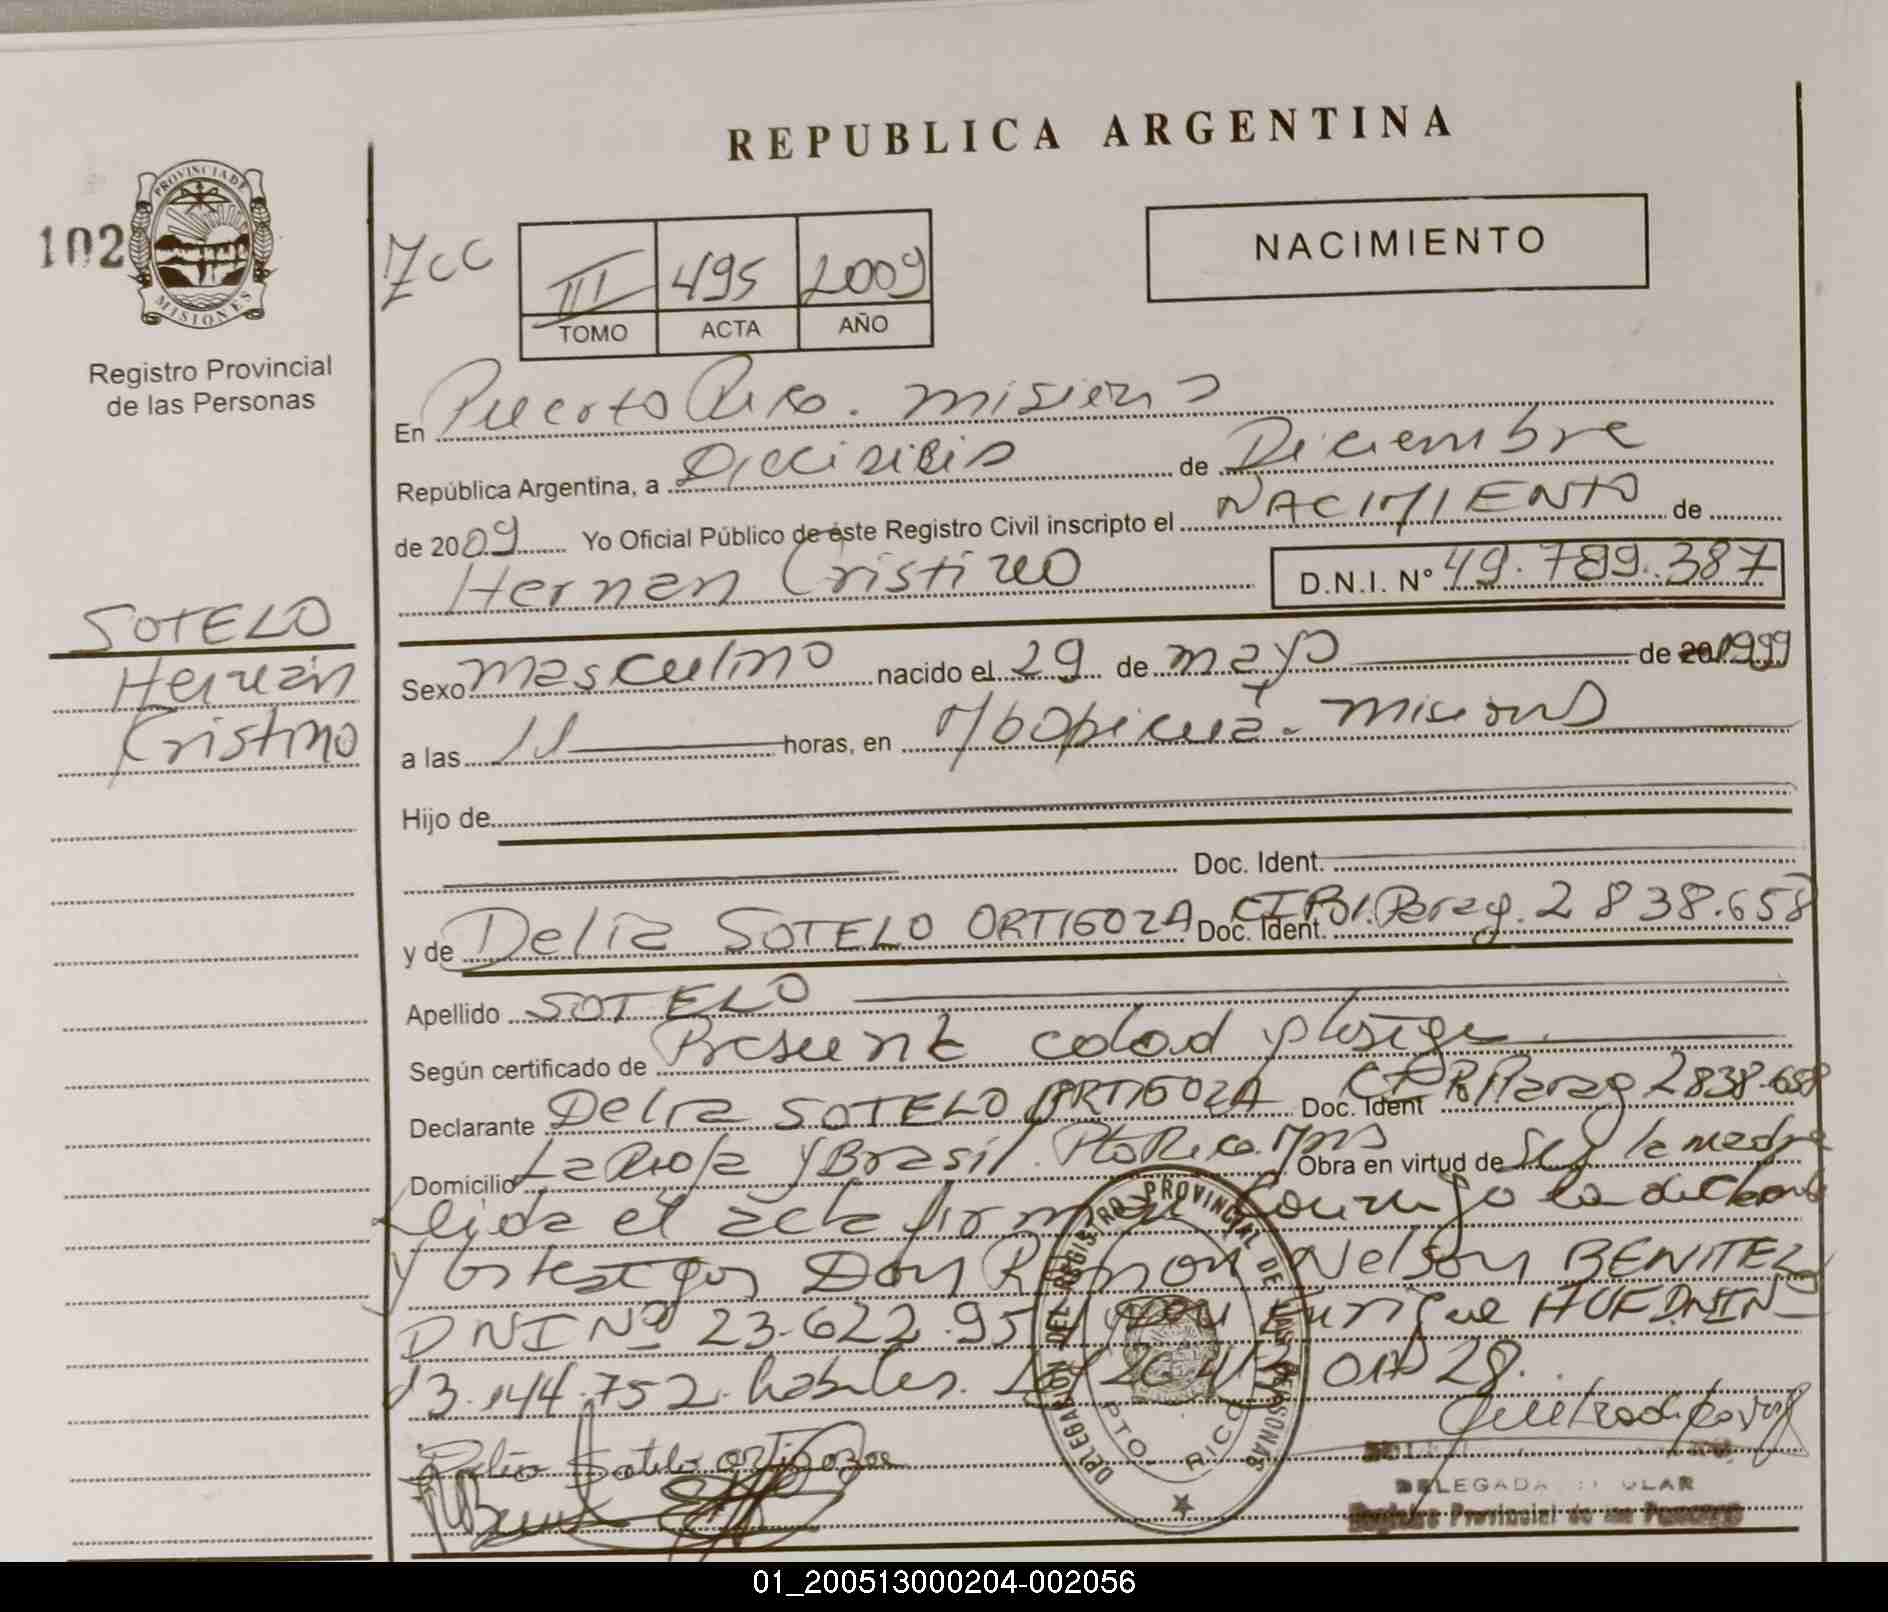 REPUBLICA ARGENTINA
PROVINCIA DE
MISIONES
102
Registro Provincial
de las Personas
III 495 2009
TOMO ACTA AÑO
NACIMIENTO
En Puerto Rico. Misiones
República Argentina, a Dieciseis de Diciembre
de 2009 Yo Oficial Público de éste Registro Civil inscripto el NACIMIENTO de
Hernan Cristino D.N.I. Nº 49.789.387
SOTELO
Hernán
Cristino
Sexo Masculino nacido el 29 de mayo de 20 1999
a las 11 horas, en Mbopicuá. Misiones
Hijo de
Doc. Ident.
y de Delia SOTELO ORTIGOZA Doc. Ident. CI Pol. Parag. 2838.658
Apellido SOTELO
Según certificado de
Declarante Delia SOTELO ORTIGOZA Doc. Ident CI Pol Parag 2838.658
Domicilio La Rioja y Brasil. Pto Rico. Mns Obra en virtud de Ser la madre
Leida el acta firman conmigo la declarante
y los testigos Don Ramon Nelson BENITEZ
DNI Nº 23.622.95 Enrique HUF DNI Nº
13.144.752. habiles. 28.
Delia Sotelo ortigoza
DELEGACION DEL REGISTRO PROVINCIAL DE LAS PERSONAS
PTO. RICO
DELEGADA TITULAR
Registro Provincial de las Personas
01_200513000204-002056